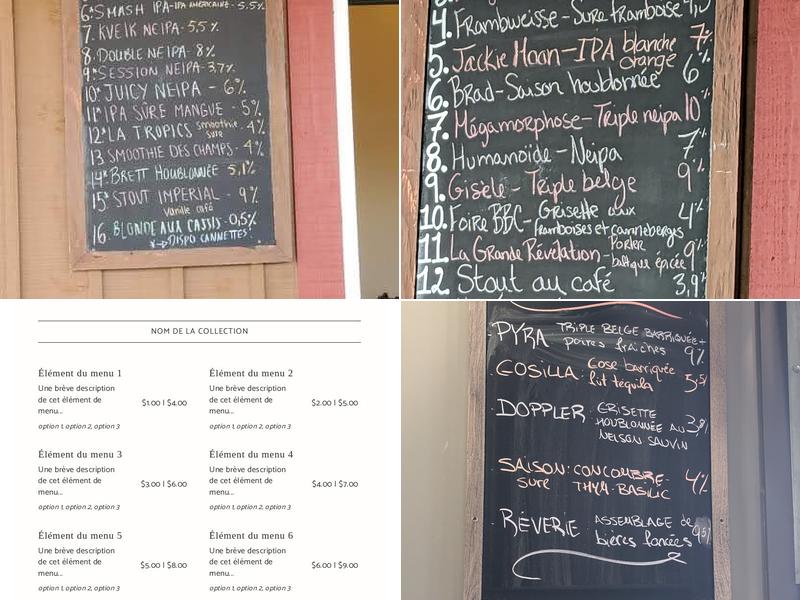 6* SMASH IPA-IPA AMÉRICAINE - 5.5%
7. KVEIK NEIPA - 5,5%
8. DOUBLE NEIPA - 8%
9* SESSION NEIPA - 3,7%
10* JUICY NEIPA - 6%
11* IPA SÛRE MANGUE - 5%
12* LA TROPICS smoothie sure - 4%
13 SMOOTHIE DES CHAMPS - 4%
14* BRETT HOUBLONNÉE 5,1%
15* STOUT IMPERIAL - 9%
Vanille café
16. BLONDE AUX CASSIS - 0,5%
*→ DISPO CANNETTES!
4. Frambweisse - Sure framboise
5. Jackie Haan - IPA blanche orange 7%
6. Brad - Saison houblonnée 6%
7. Mégamorphose - Triple neipa 10%
8. Humanoïde - Neipa 7%
9. Gisèle - Triple belge 9%
10. Foire BBC - Grisette aux framboises et canneberges 4%
11. La Grande Révélation - Porter baltique épicée 9%
12 Stout au café 3,9%
NOM DE LA COLLECTION
Élément du menu 1
Une brève description
de cet élément de
menu...
$1.00 | $4.00
option 1, option 2, option 3
Élément du menu 2
Une brève description
de cet élément de
menu...
$2.00 | $5.00
option 1, option 2, option 3
Élément du menu 3
Une brève description
de cet élément de
menu...
$3.00 | $6.00
option 1, option 2, option 3
Élément du menu 4
Une brève description
de cet élément de
menu...
$4.00 | $7.00
option 1, option 2, option 3
Élément du menu 5
Une brève description
de cet élément de
menu...
$5.00 | $8.00
option 1, option 2, option 3
Élément du menu 6
Une brève description
de cet élément de
menu...
$6.00 | $9.00
option 1, option 2, option 3
PYRA TRIPLE BELGE BARRIQUÉE +
poires fraîches 9%
GOSILLA: Gose barriquée
fût téquila 5,5%
DOPPLER: GRISETTE
HOUBLONNÉE AU 3,8%
NELSON SAUVIN
SAISON: CONCOMBRE-
sure THYM-BASILIC 4%
RÊVERIE ASSEMBLAGE de
bières foncées